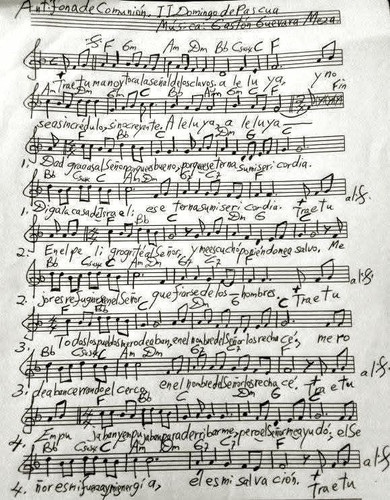 Antífona de Comunión. II Domingo de Pascua
Música: Gastón Guevara Meza
F Gm Am Dm Bb Csus4 C F
Trae tu mano y toca la señal de los clavos. a le lu ya, y no
Am Dm Gm C Bb Am Gm C F Fin
seas incrédulo, sino creyente. A leluya, a leluya
Bb F Bb C
1. Dad gracias al Señor porque es bueno, porque es eterna su miseri cordia.
Bb Csus4 C Am Dm G7 C7 F
1. Diga la casa de Isra el: es eterna su miseri cordia. Trae tu al S.
F Bb C Dm G
2. En el pe li gro grité al Señor, y me escuchó poniéndome a salvo, Me
Bb Csus4 C Am Dm G7 C7 F
2. jor es refugiarse en el Señor que fiarse de los hombres. Trae tu al S.
F Bb C Dm G C
3. Todos los pueblos me rodeaban, en el nombre del Señor los rechacé, me ro
Bb Csus4 C Am Dm G7 C7 F
3. deaban cerrando el cerco, en el nombre del Señor los rechacé, Trae tu al S.
F Bb C Dm G C
4. Empu jaban y empujaban para derribarme, pero el Señor me ayudó; el Se
Bb Csus4 C Am Dm G7 C7 F
4. ñor es mi fuerza y mi energía, él es mi salvación. Trae tu al S.